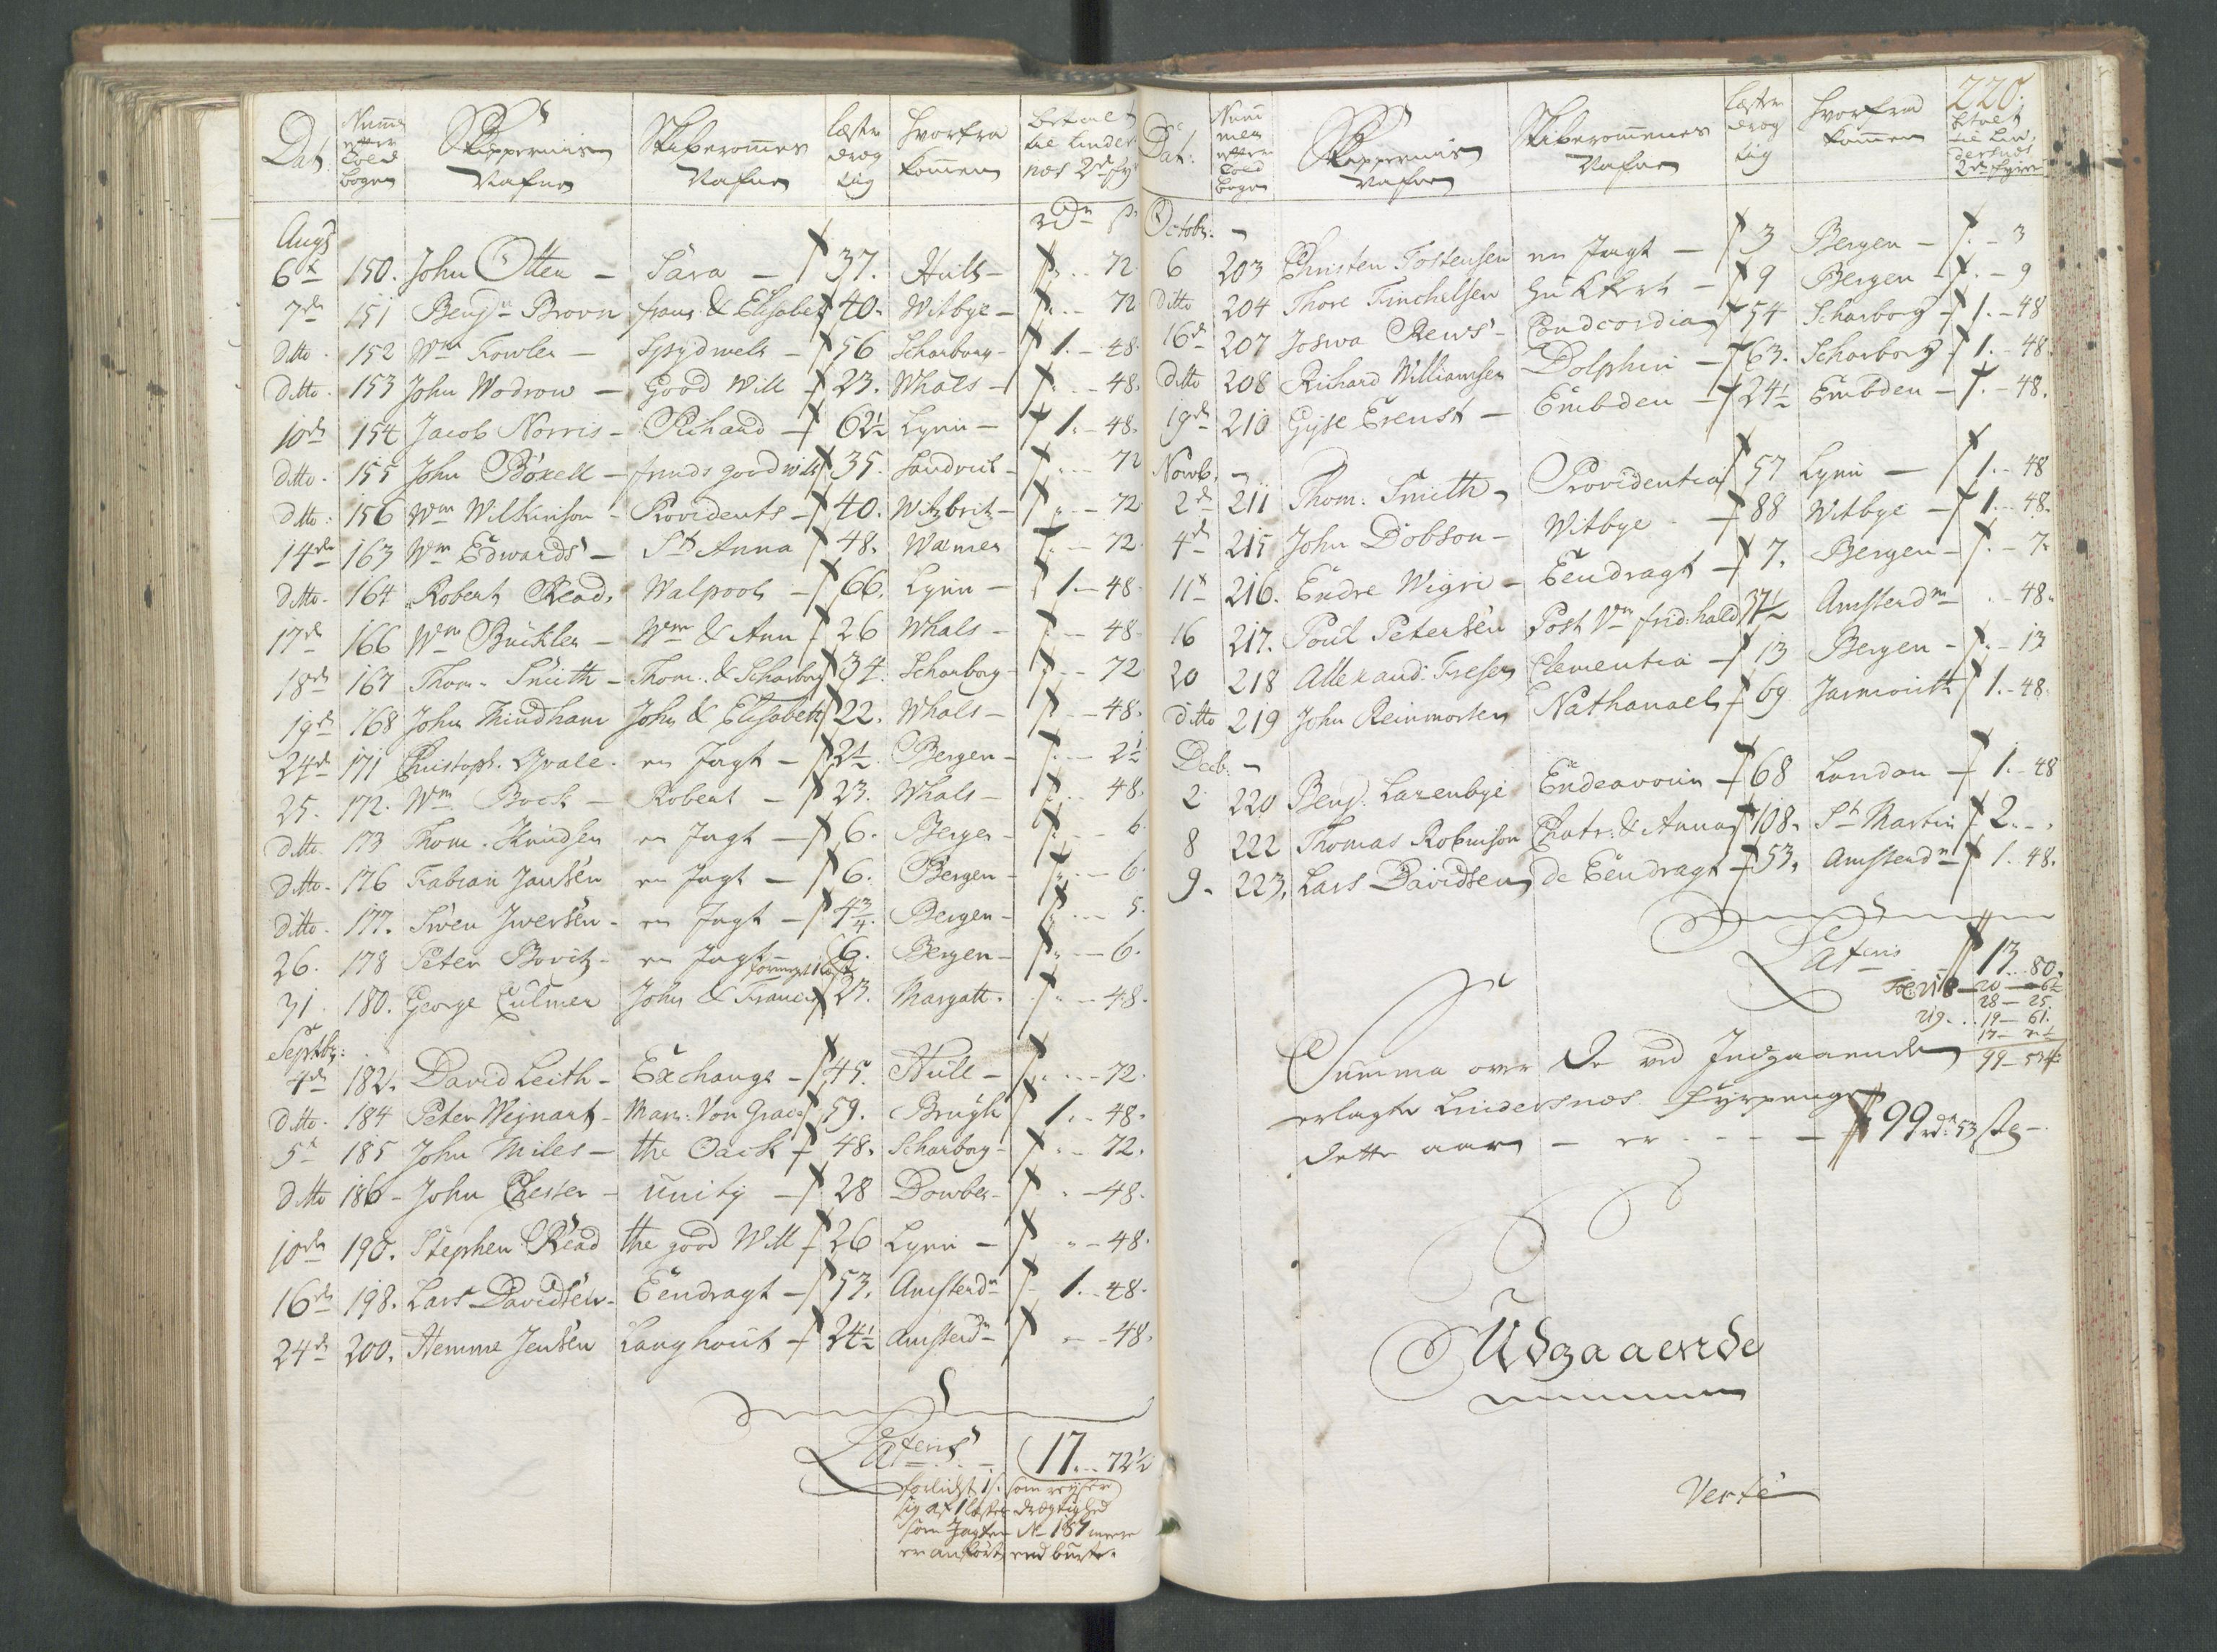 Dat:
Num̄er efter Told bogen
Skippernis Nafne
Skiberommes Nafne
læster dræg tig
hvorfra kommen
betalt til Linder næs 2de fyr
rdr s
Augs
6te 150. John Otten – Sara – 37. Hull – 72
7de 151 Benjn Brovn frans & Elisabet 40. Witbye – 72
Ditto 152 Wm Fowler – Spydwels – 56 Scharborg – 1. – 48.
Ditto 153 John Wodrow – Good Will – 23. Whals – 48.
10de 154 Jacob Norris – Richard – 62½ Lynn – 1. – 48.
Ditto 155 John Boxell – frinds good will 35. Sandvich – 72
Ditto 156 Wm Wilkinson – Providents – 40. Witzbrits – 72
14de 163 Wm Edwards – St Anna 48. Wames – 72.
Ditto 164 Robert Read, Walpool – 66. Lynn – 1. – 48
17de 166 Wm Buckler – Wm & Ann – 26 Whals – 48
18de 167 Thom. Smith – Thom. & Scharborg 34. Scharborg – 72
19de 168 John Thindham John & Elisabeth 22. Whals – 48.
24de 171 Christoph. Qvale. en Jagt – 2½ Bergen – 2½
25. 172. Wm Bock – Robert – 23. Whals – 48.
Ditto 173 Thom. Knudsen en Jagt – 6. Bergen – 6.
Ditto 176 Fabian Jansen en Jagt – 6. Bergen – 6.
Ditto 177. Swen Jwersen – en Jagt – 4¾. Bergen – 5.
26. 178 Peter Bovitz – en Jagt – 6. Bergen – 6.
31. 180. George Culmer John & Francis 23. Margatt. – 48.
Septbr:
4de 182. David Leith – Exchange – 45. Hull – 72.
Ditto 184 Peter Weynart – Mari: Von Grace 59. Brugh 1. – 48.
5te 185 John Miles – the Oack – 48. Scharborg – 72.
Ditto 186 – John Chester – unity – 28 Dowber – 48.
10de 190. Stephen Read the good Will – 26 Lynn – 48.
16de 198. Lars Davidsen – Eendragt – 53. Amsterdm – 1. – 48.
24de 200. Hemme Jensen Langhout – 24½ Amsterdm – 48.
Lateris 17. – 72½
forlidst 1 s. som reyser
sig af 1 læster drægtighed
som Jagten No 157 meere
er anført end burte.
220.
Dat:
Num mer efter Told bogen
Skippernis Nafne
Skiberommenes Nafne
læster dræg tig
hvorfra kommen
betalt til Lin dersnes 2de fyrer
Octobr. –
6 203 Christen Tostensen en Jagt – 3 Bergen – 3
ditto 204 Thore Finchelsen Hukkert – 9 Bergen – 9
16de 207 Joswa Rews – Condcordia 54 Scharborg – 1. – 48
ditto 208 Richard Williamsen Dolphin – 63. Scharborg 1. – 48.
19de 210 Gyse Erenst – Embden – 24½ Embden – 48.
Novb. –
2de 211 Thom: Smith – Providentia 57 Lynn – 1. – 48
4de 215 John Dobson – Witbye – 88 Witbye – 1. – 48.
11te 216. Endre Wigri – Eendragt – 7. Bergen – 7.
16 217. Poul Petersen Post Vm frid: hald 37½ Amsterdm – 48.
20 218 Allexand: Fresen Clementia – 13 Bergen – 13
ditto 219 John Reinmorten Nathanael – 69 Jarmouth 1. – 48.
Decb. –
2 220 Benj. Lazenbye Endeavour – 68 London – 1. – 48
8 222 Thomas Robinson Chatr: & Anna 108. St Martin 2. – .
9. 223. Lars Davidsen de Eendragt – 53. Amsterdm 1. 48.
Lateris 13. 80.
Fol: 218 – 20 – 62
28 – 25.
219. . . 19 – 61.
17 – 72½
99 – 53½
Summa over de ved Indgaaende
erlagte Lindersnæs fyrpenge
dette aar – er – – – 99 rdr 53 s –
Udgaaende
Verte